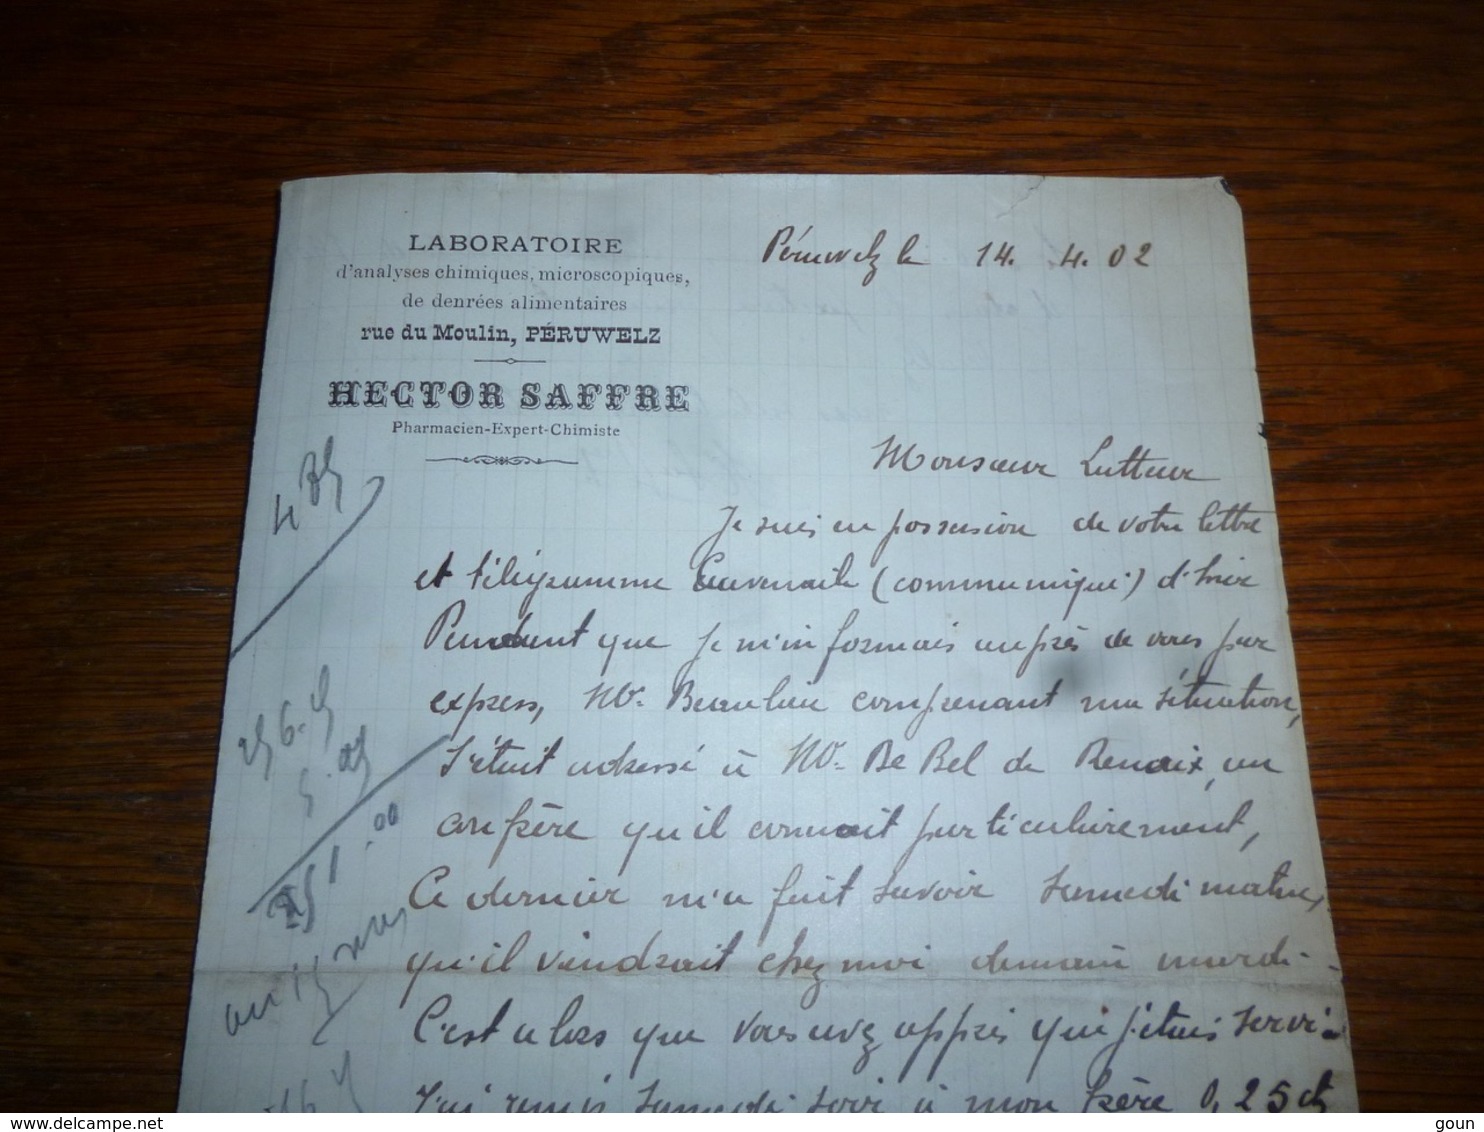 LABORATOIRE
d'analyses chimiques, microscopiques,
de denrées alimentaires
rue du Moulin, PÉRUWELZ
HECTOR SAFFRE
Pharmacien-Expert-Chimiste
Péruwelz le 14. 4. 02
Monsieur Lutteur
Je suis en possession de votre lettre
et télégramme (communiqué) d'hier
Pendant que je m'informais auprès de vous par
express, Mr. Beaulieu comprenant ma situation,
s'était adressé à Mr. De Bel de Renaix, un
confrère qu'il connait particulièrement,
Ce dernier m'a fait savoir samedi matin,
qu'il viendrait chez moi demain mardi.
C'est alors que vous avez appris que j'étais servi.
J'ai remis samedi soir à mon frère 0,25 ct
4
256.
5.
251.00
au 15 mars
delcampe.net
goun